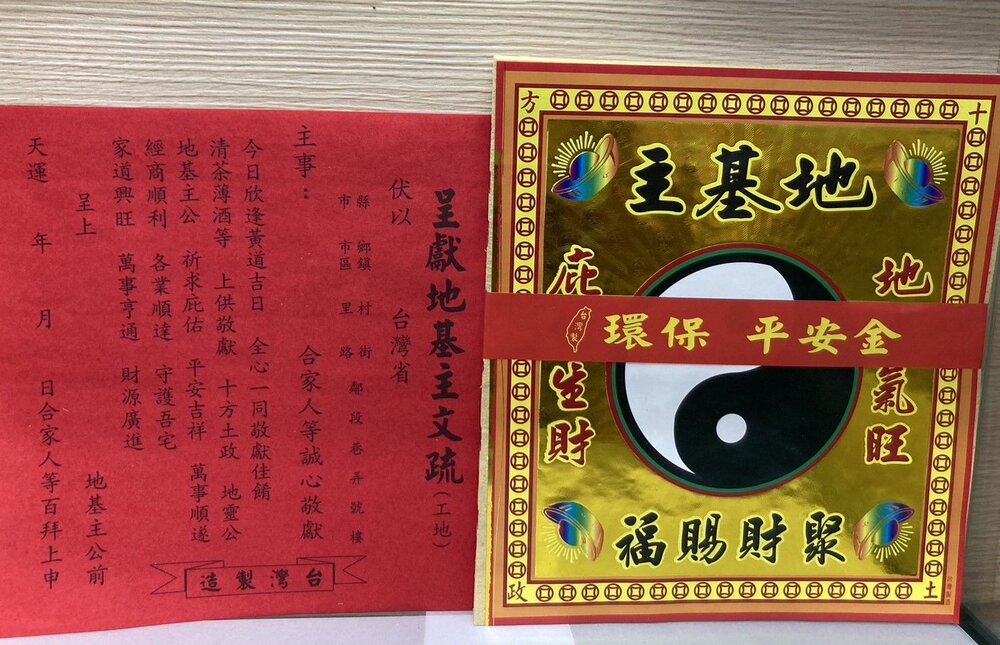 呈獻地基主文疏(工地)
伏以 台灣省
縣 鄉鎮 村 街 鄰段巷弄號樓
市 市區 里 路
主事： 合家人等誠心敬獻
今日欣逢黃道吉日 全心一同敬獻佳餚
清茶薄酒等 上供敬獻 十方土政 地靈公
地基主公 祈求庇佑 平安吉祥 萬事順遂
經商順利 各業順達 守護吾宅
家道興旺 萬事亨通 財源廣進
呈上 地基主公前
天運 年 月 日合家人等百拜上申
台灣製造
十
方
地基主
地
氣旺
庇
生財
台灣製
環保 平安金
聚財賜福
土
政